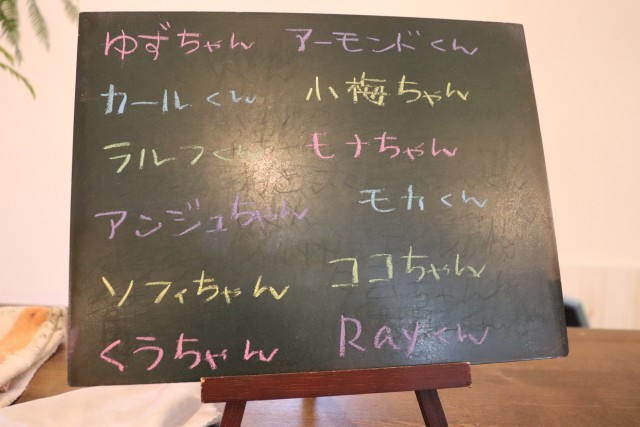 ゆずちゃん アーモンドくん
カールくん 小梅ちゃん
ラルフくん モナちゃん
アンジュちゃん モカくん
ソフィちゃん ココちゃん
くうちゃん Rayくん